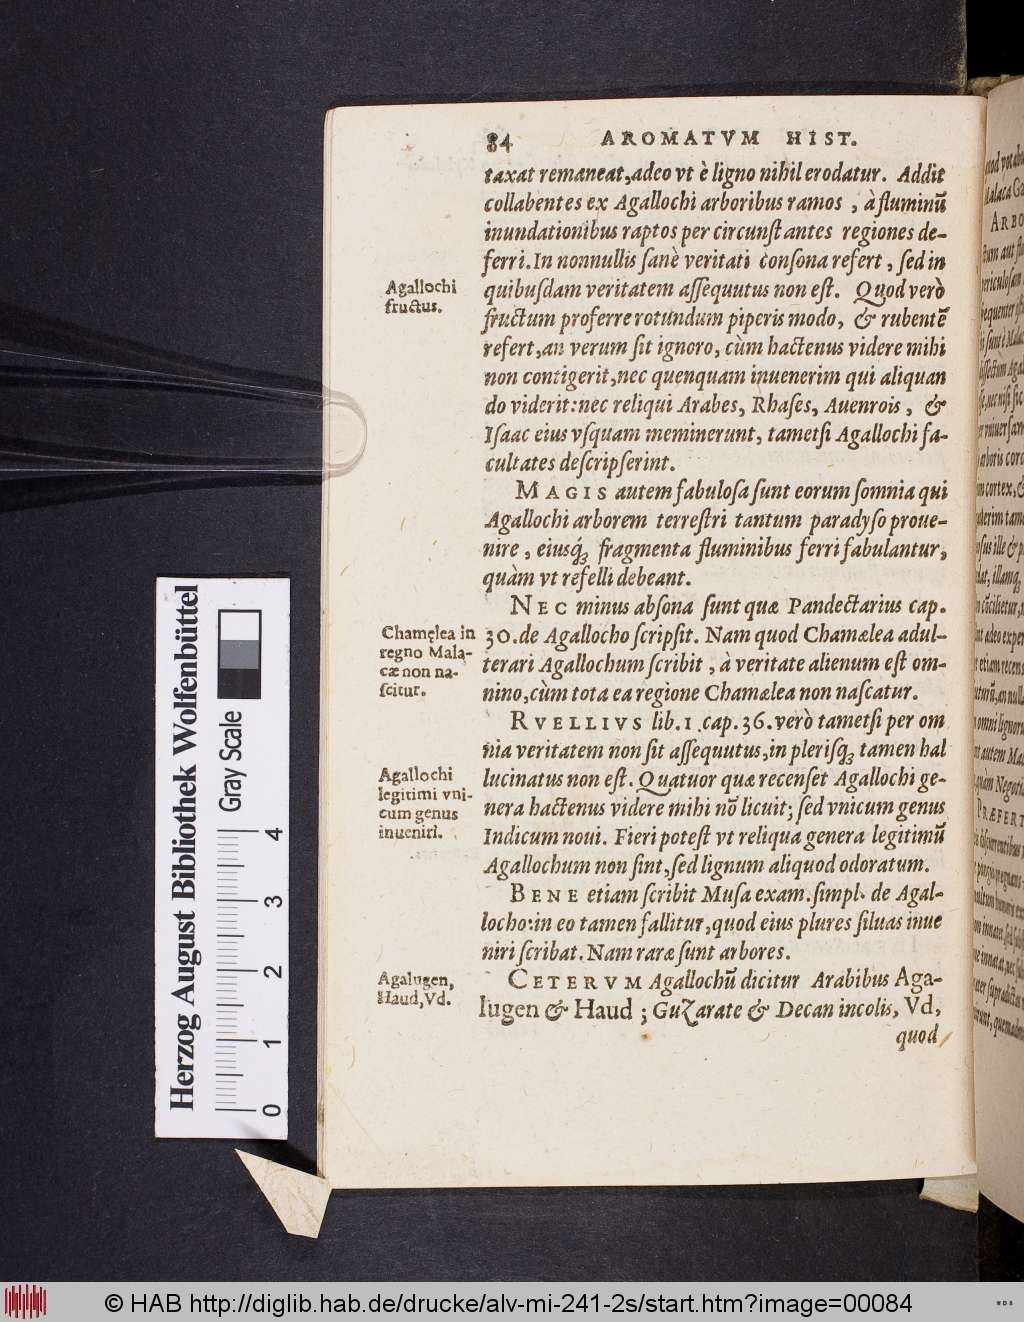 84 AROMATVM HIST.
taxat remaneat, adeo vt è ligno nihil erodatur. Addit
collabentes ex Agallochi arboribus ramos, à fluminũ
inundationibus raptos per circunstantes regiones de-
ferri. In nonnullis sanè veritati consona refert, sed in
Agallochi
fructus.
quibusdam veritatem assequutus non est. Quod verò
fructum proferre rotundum piperis modo, & rubentẽ
refert, an verum sit ignoro, cùm hactenus videre mihi
non contigerit, nec quenquam inuenerim qui aliquan
do viderit: nec reliqui Arabes, Rhases, Auenrois, &
Isaac eius vsquam meminerunt, tametsi Agallochi fa-
cultates descripserint.
MAGIS autem fabulosa sunt eorum somnia qui
Agallochi arborem terrestri tantum paradyso proue-
nire, eiusq́; fragmenta fluminibus ferri fabulantur,
quàm vt refelli debeant.
NEC minus absona sunt quæ Pandectarius cap.
Chamęlea in
regno Mala-
cæ non na-
scitur.
30. de Agallocho scripsit. Nam quod Chamælea adul-
terari Agallochum scribit, à veritate alienum est om-
nino, cùm tota ea regione Chamælea non nascatur.
RVELLIVS lib. 1. cap. 36. verò tametsi per om
nia veritatem non sit assequutus, in plerisq́; tamen hal
Agallochi
legitimi vni-
cum genus
inueniri.
lucinatus non est. Quatuor quæ recenset Agallochi ge-
nera hactenus videre mihi nõ licuit; sed vnicum genus
Indicum noui. Fieri potest vt reliqua genera legitimũ
Agallochum non sint, sed lignum aliquod odoratum.
BENE etiam scribit Musa exam. simpl. de Agal-
locho: in eo tamen fallitur, quod eius plures siluas inue
niri scribat. Nam raræ sunt arbores.
Agalugen,
Haud, Vd.
CETERVM Agallochũ dicitur Arabibus Aga-
lugen & Haud; Guzarate & Decan incolis, Vd,
quod
Herzog August Bibliothek Wolfenbüttel
Gray Scale
0 1 2 3 4
© HAB http://diglib.hab.de/drucke/alv-mi-241-2s/start.htm?image=00084